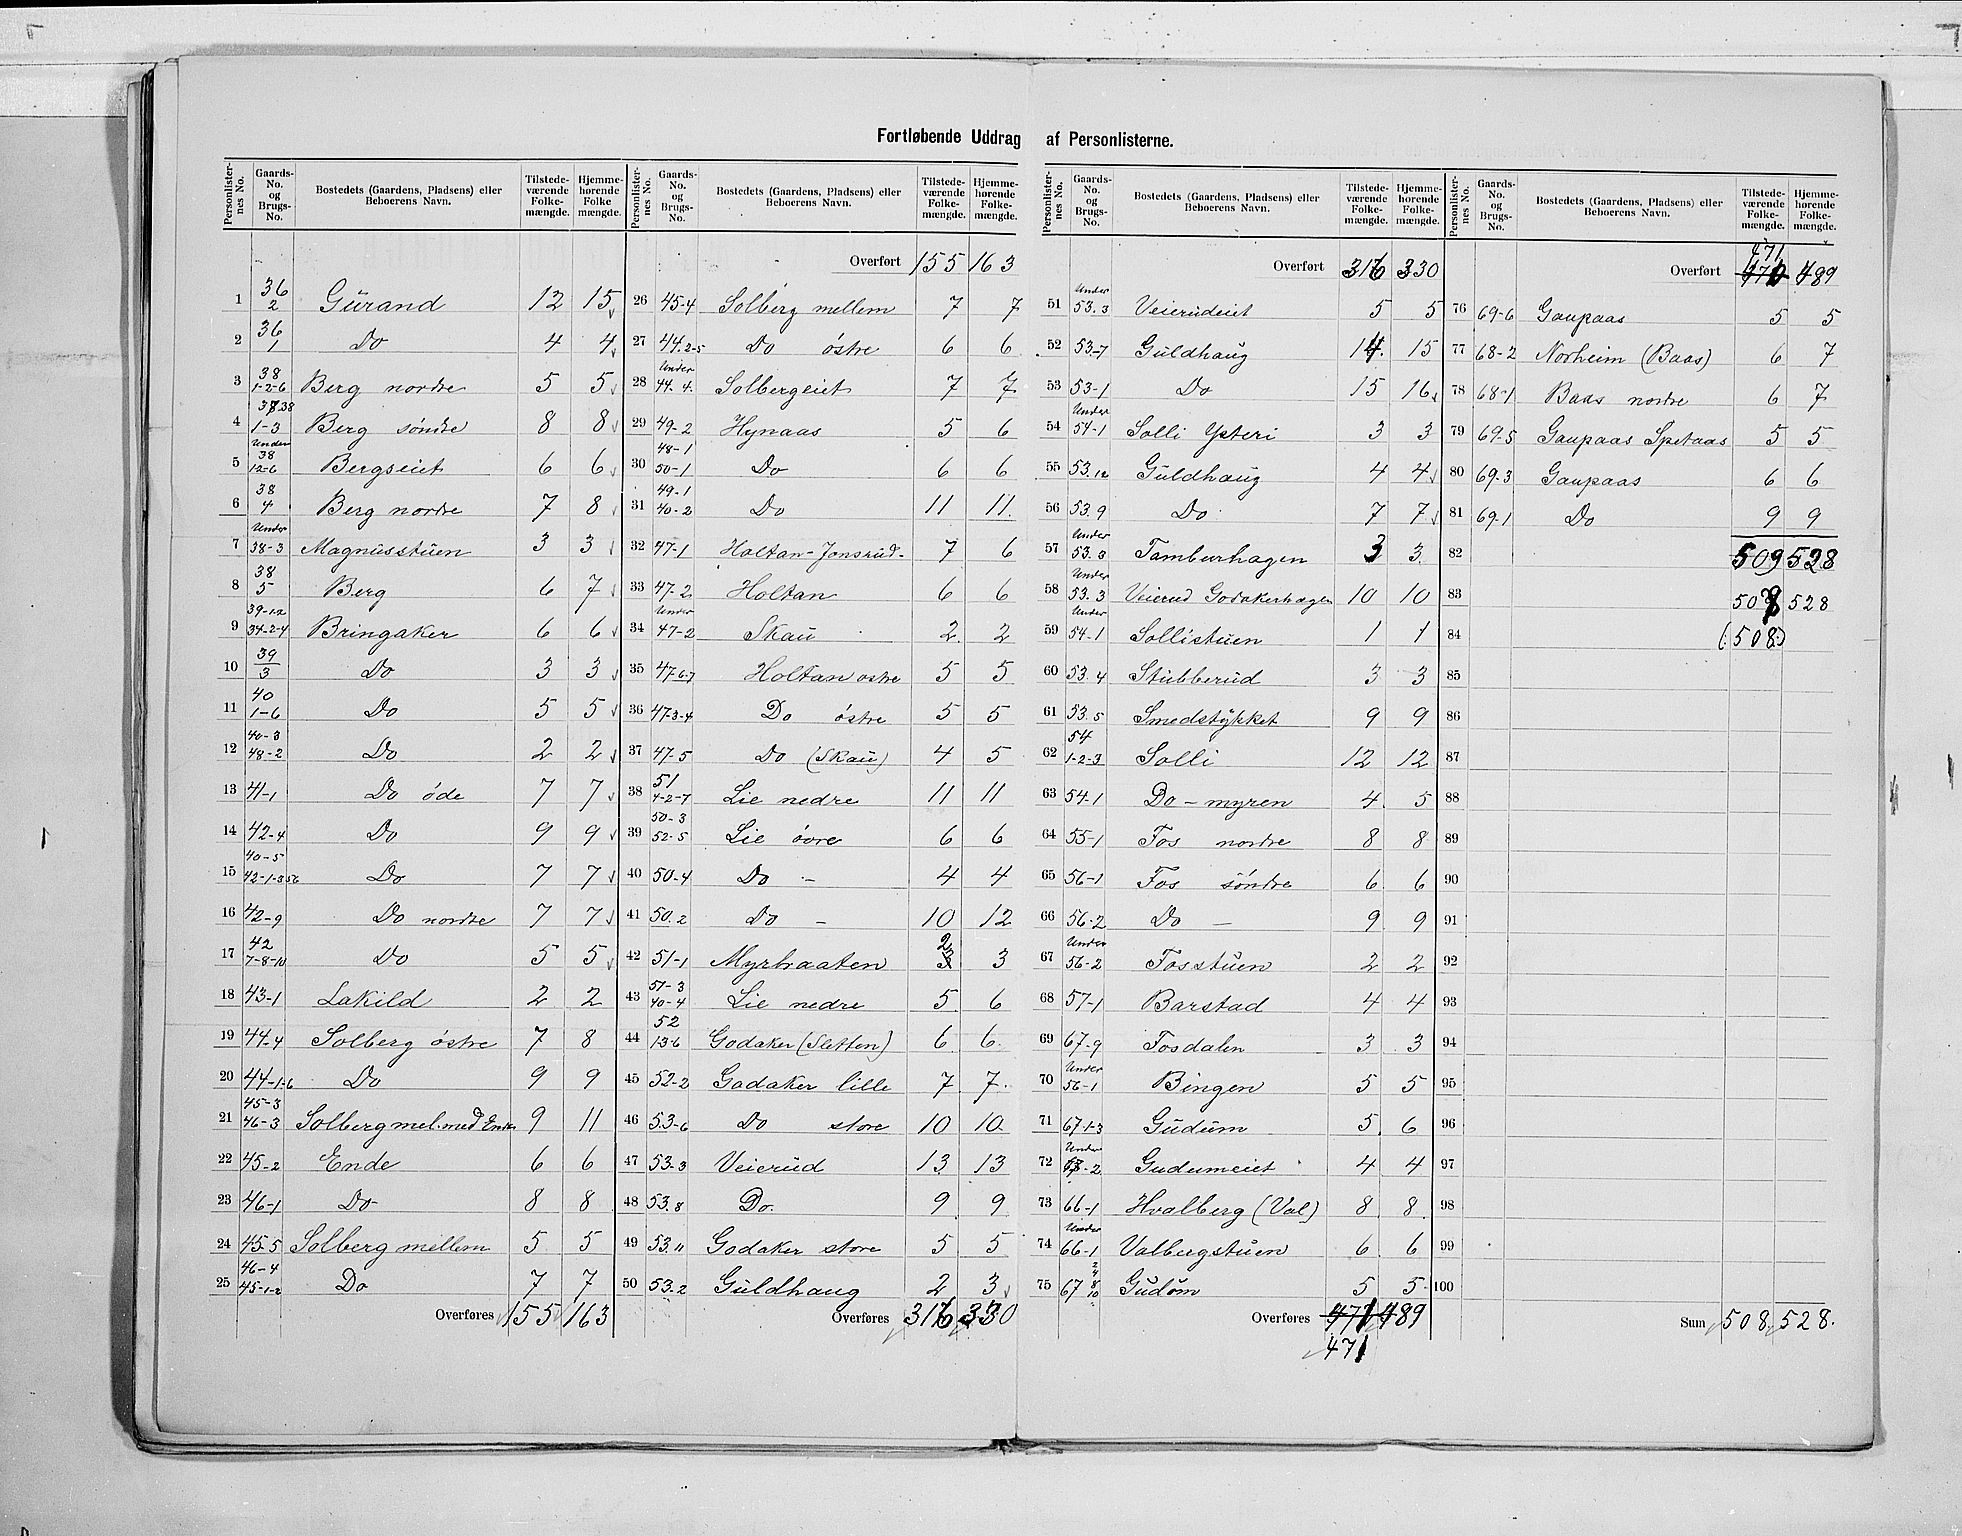 Fortløbende Uddrag af Personlisterne.
Personlisternes No. | Gaards-No. og Brugs-No. | Bostedets (Gaardens, Pladsens) eller Beboerens Navn. | Tilstedeværende Folkemængde. | Hjemmehørende Folkemængde.
1 36 2 Gurand 12 15
2 36 1 Do 4 4
3 38 1-2-6 Berg nordre 5 5
4 37.38 1-3 Berg søndre 8 8
5 Under 38 12-6 Bergseiet 6 6
6 38 4 Berg nordre 7 8
7 Under 38-3 Magnusstuen 3 3
8 38 5 Berg 6 7
9 39-1-2 34-2-4 Bringaker 6 6
10 39 3 Do 3 3
11 40 1-6 Do 5 5
12 40-3 48-2 Do 2 2
13 41-1 Do øde 7 7
14 42-4 Do 9 9
15 40-5 42-1-3 56 Do 7 7
16 42-9 Do nordre 7 7
17 42 7-8-10 Do 5 5
18 43-1 Lakild 2 2
19 44-4 Solberg østre 7 8
20 44-1-6 Do 9 9
21 45-3 46-3 Solberg mel. med Ende 9 11
22 45-2 Ende 6 6
23 46-1 Do 8 8
24 45-5 Solberg mellem 5 5
25 46-4 45-1-2 Do 7 7
Overføres 155 163
Overført 155 163
26 45-4 Solberg mellem 7 7
27 44.2-5 Do østre 6 6
28 Under 44.4. Solbergeiet 7 7
29 49-2 Hynaas 5 6
30 48-1 50-1 Do 6 6
31 49-1 40-2 Do 11 11.
32 47-1 Holtan-Jonsrud- 7 6
33 47-2 Holtan 6 6
34 Under 47-2 Skau 2 2
35 47-6-7 Holtan østre 5 5
36 47-3-4 Do østre 5 5
37 47-5 Do (Skau) 4 5
38 51 4-2-7 Lie nedre 11 11
39 50-3 52-5 Lie øvre 6 6
40 50-4 Do - 4 4
41 50.2 Do - 10 12
42 51-1 Myrbraaten 2 3 3
43 51-3 40-4 Lie nedre 5 6
44 52 1-3-6 Godaker (Sletten) 6 6
45 52-2 Godaker lille 7 7
46 53-6 Do store 10 10
47 53-3 Veierud 13 13
48 53.8 Do. 9 9
49 53.11 Godaker store 5 5
50 53.2 Guldhaug 2 3
Overføres 316 330
Overført 316 330
51 Under 53.3 Veierudeiet 5 5
52 53-7 Guldhaug 14. 15
53 53-1 Do 15 16
54 Under 54-1 Solli Ysteri 3 3
55 53.12 Guldhaug 4 4
56 53.9 Do 7 7
57 Under 53.3 Tamburhagen 3 3
58 Under 53.3 Veierud Godakerhagen 10 10
59 Under 54-1 Sollistuen 1 1
60 53.4 Stubberud 3 3
61 53.5 Smedstykket 9 9
62 54 1-2-3 Solli 12 12
63 54-1 Do - myren 4 5
64 55-1 Fos nordre 8 8
65 56-1 Fos søndre 6 6
66 56-2 Do - 9 9
67 Under 56-2 Fosstuen 2 2
68 57-1 Barstad 4 4
69 67-9 Fosdalen 3 3
70 Under 56-1 Bingen 5 5
71 67-1-3 Gudum 5 6
72 Under -2 Gudumeiet 4 4
73 66-1 Hvalberg (Val) 8 8
74 Under 66-1 Valbergstuen 6 6
75 67 2 4 8 10 Gudum 5 5
Overføres 471 489
471
471
Overført 470 489
76 69-6 Gaupaas 5 5
77 68-2 Norheim (Baas) 6 7
78 68-1 Baas nordre 6 7
79 69-5 Gaupaas Spetaas 5 5
80 69.3 Gaupaas 6 6
81 69-1 Do 9 9
82 509 528
83 508 528
84 (:508:)
85
86
87
88
89
90
91
92
93
94
95
96
97
98
99
100
Sum 508 528.